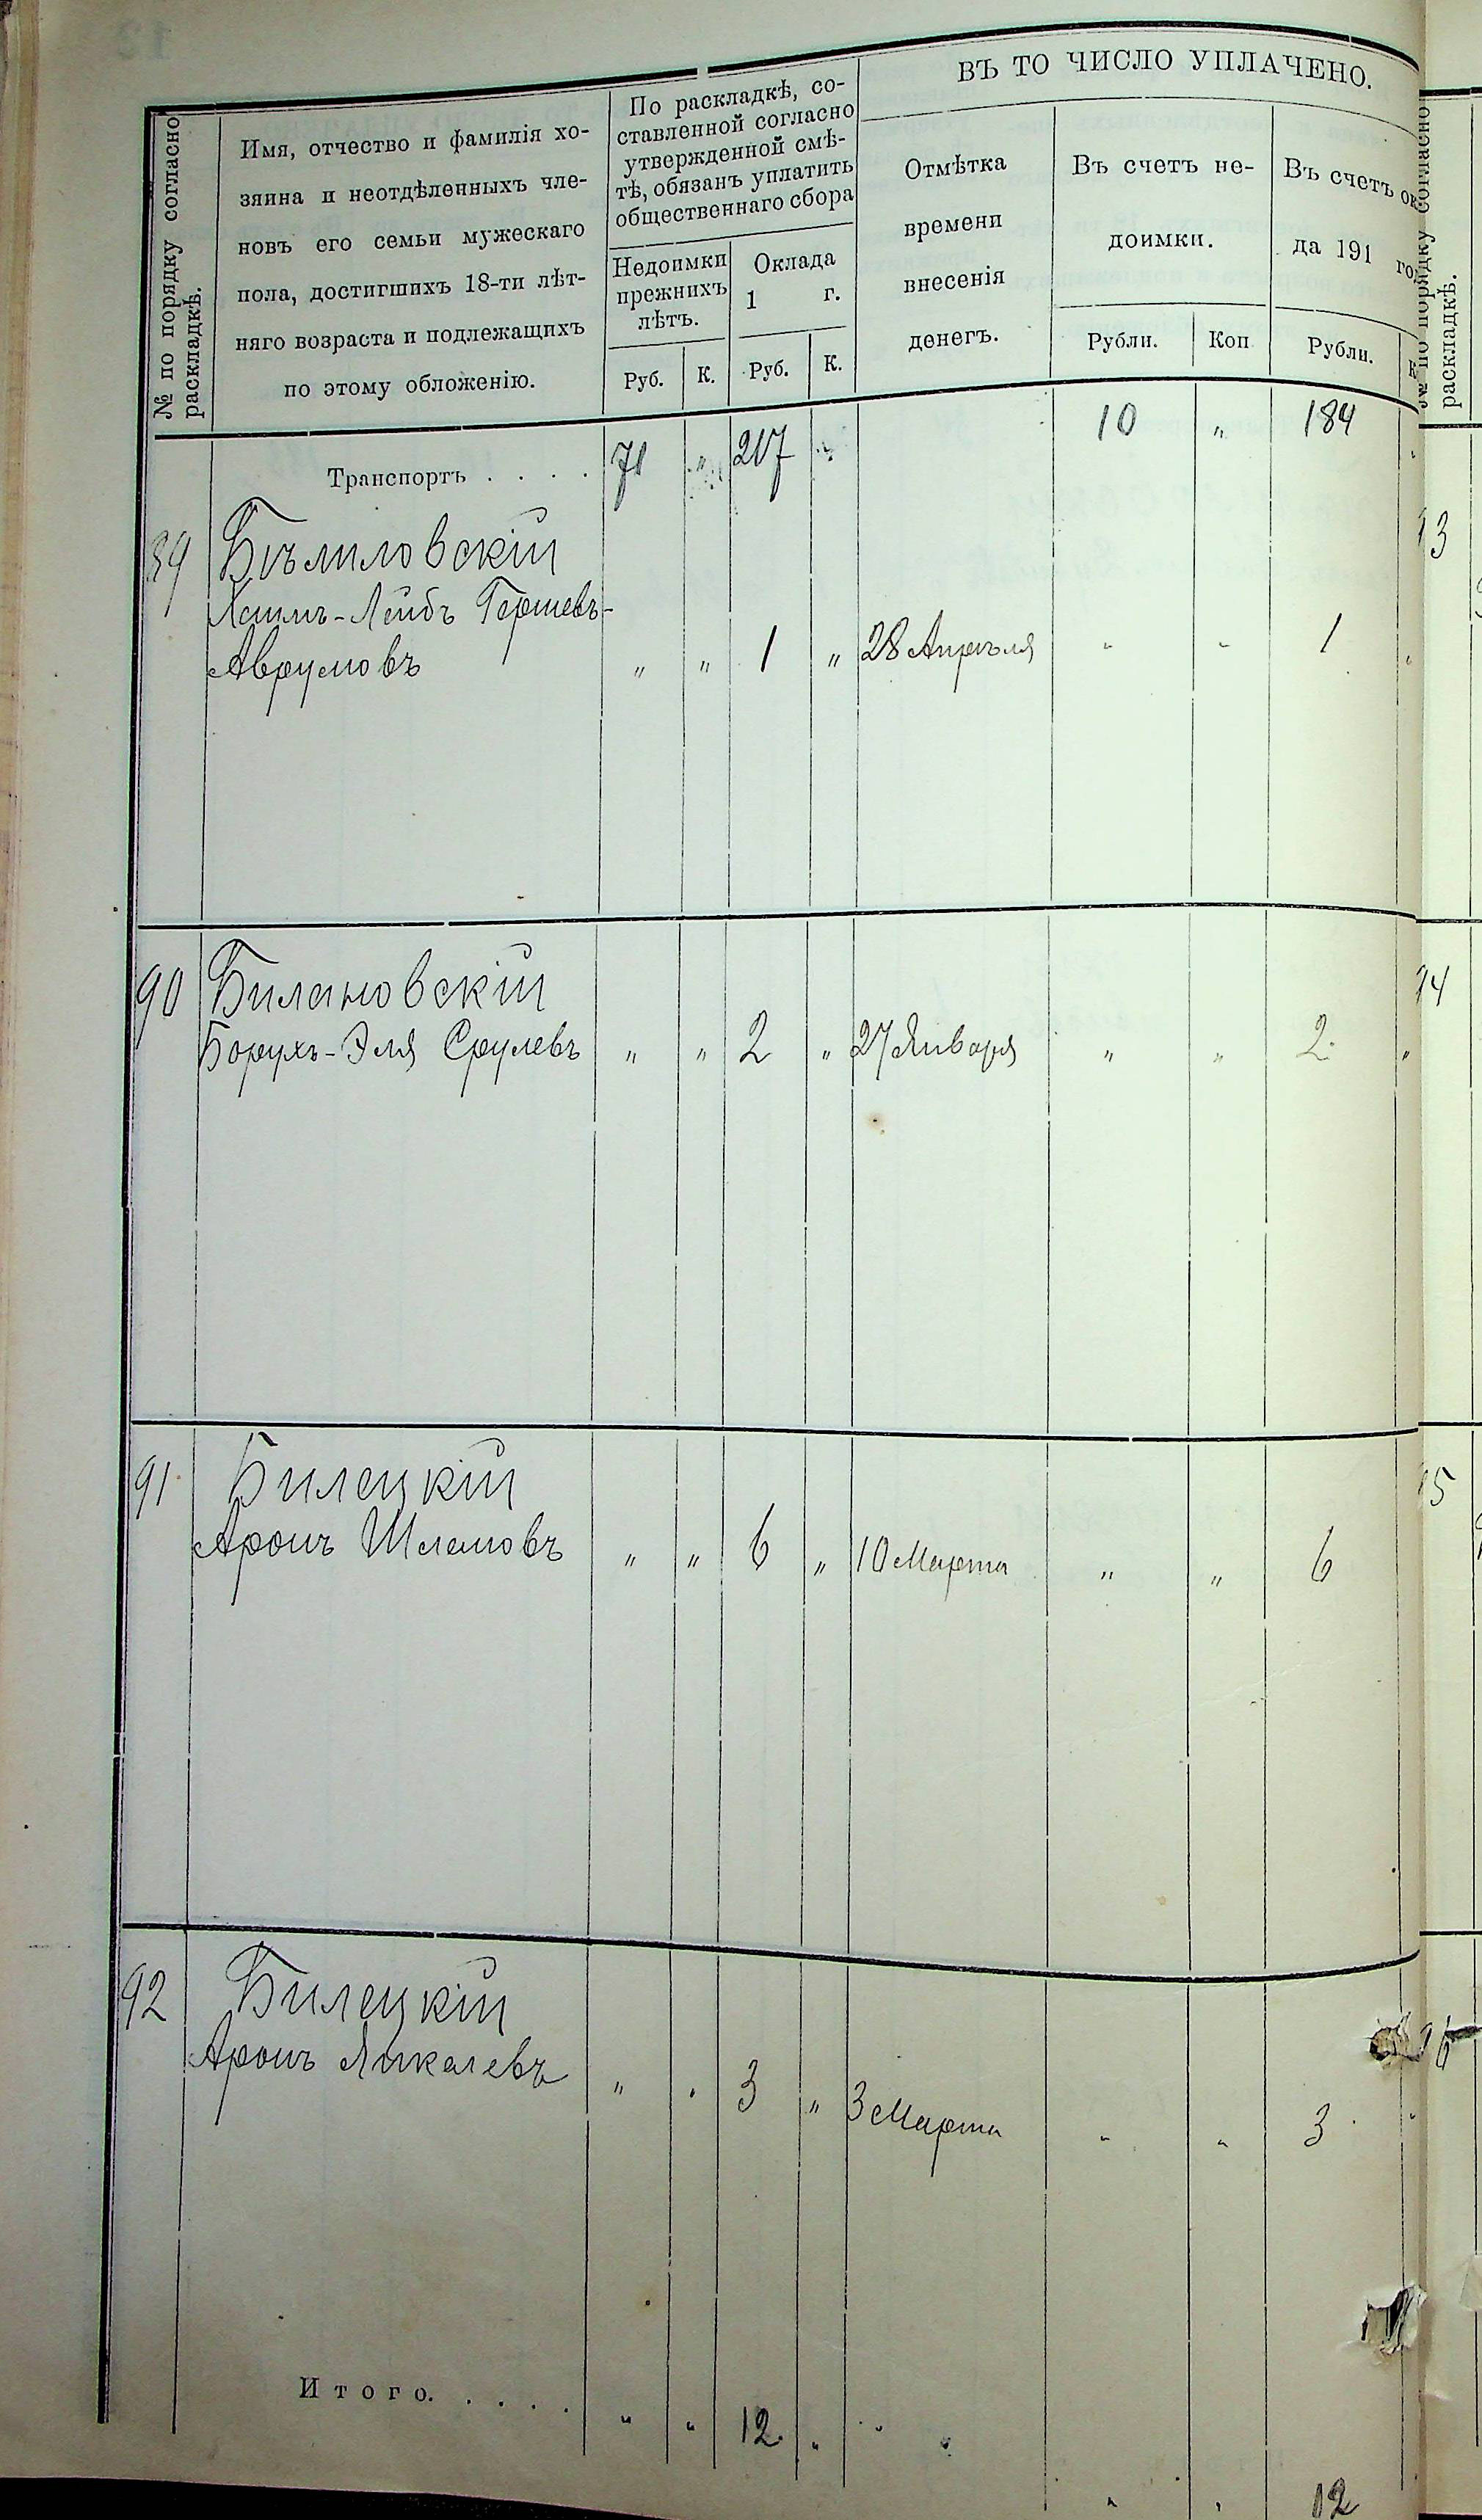 № по порядку согласно
раскладкѣ.
Имя, отчество и фамилія хо-
зяина и неотдѣленныхъ чле-
новъ его семьи мужескаго
пола, достигшихъ 18-ти лѣт-
няго возраста и подлежащихъ
по этому обложенію.
По раскладкѣ, со-
ставленной согласно
утвержденной смѣ-
тѣ, обязанъ уплатить
общественнаго сбора
Недоимки
прежнихъ
лѣтъ.
Руб. К.
Оклада
1 г.
Руб. К.
ВЪ ТО ЧИСЛО УПЛАЧЕНО.
Отмѣтка
времени
внесенія
денегъ.
Въ счетъ не-
доимки.
Рубли. Коп
Въ счетъ ок
да 191 го
Рубли. К
№ по порядку согласно
раскладкѣ.
Транспортъ . . . . 71 " 217 " 10 " 184 "
89 Бѣлиловскій
Хаимъ-Лейбъ Гершевъ-
Аврумовъ " " 1 " 28 Апрѣля " " 1 "
90 Билановскій
Борухъ-Эля Срулевъ " " 2 " 27 Января " " 2 "
91 Билецкій
Аронъ Шлемовъ " " 6 " 10 Марта " " 6
92 Билецкій
Аронъ Янкелевъ " " 3 " 3 Марта " " 3 "
Итого. . . . . " " 12 " " " 12
93
94
95
96